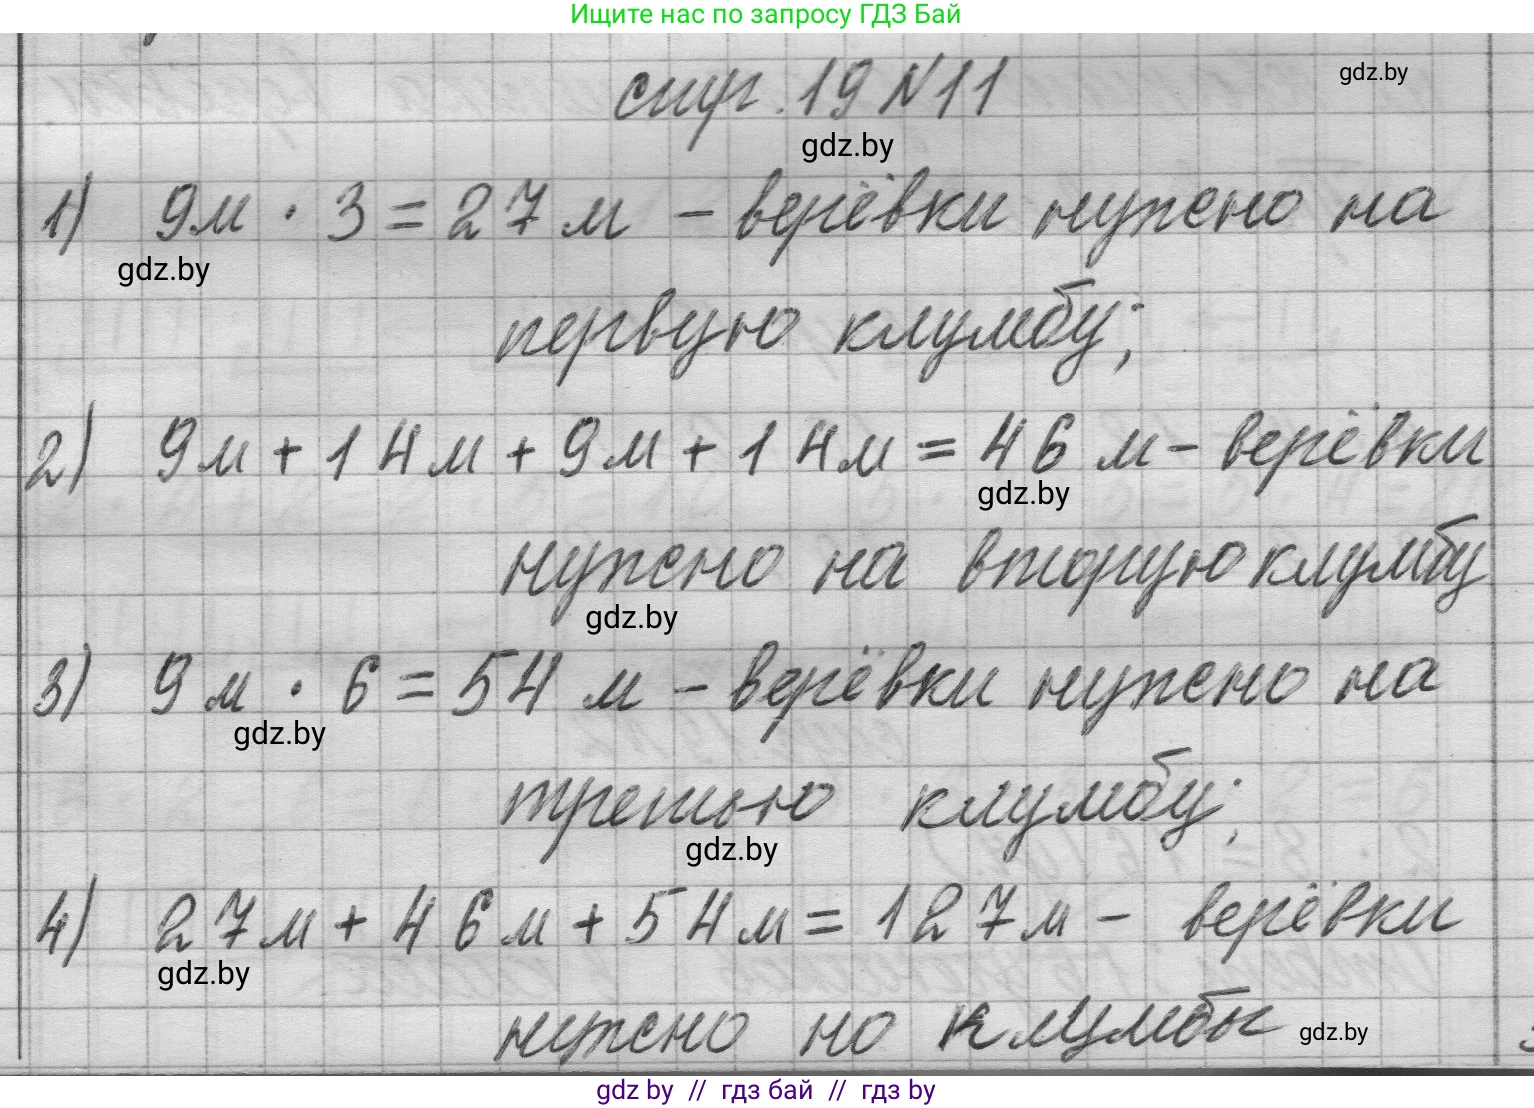 Ищите нас по запросу ГДЗ Бай
стр. 19 №11
gdz.by
gdz.by
1) 9м · 3 = 27 м – верёвки нужно на
gdz.by
первую клумбу;
2) 9м + 14м + 9м + 14м = 46 м – верёвки
gdz.by
нужно на вторую клумбу
gdz.by
3) 9м · 6 = 54 м – верёвки нужно на
gdz.by
третью клумбу;
gdz.by
4) 27м + 46м + 54м = 127м – верёвки
gdz.by
нужно но клумбы
gdz.by
gdz by // гдз бай // гдз by